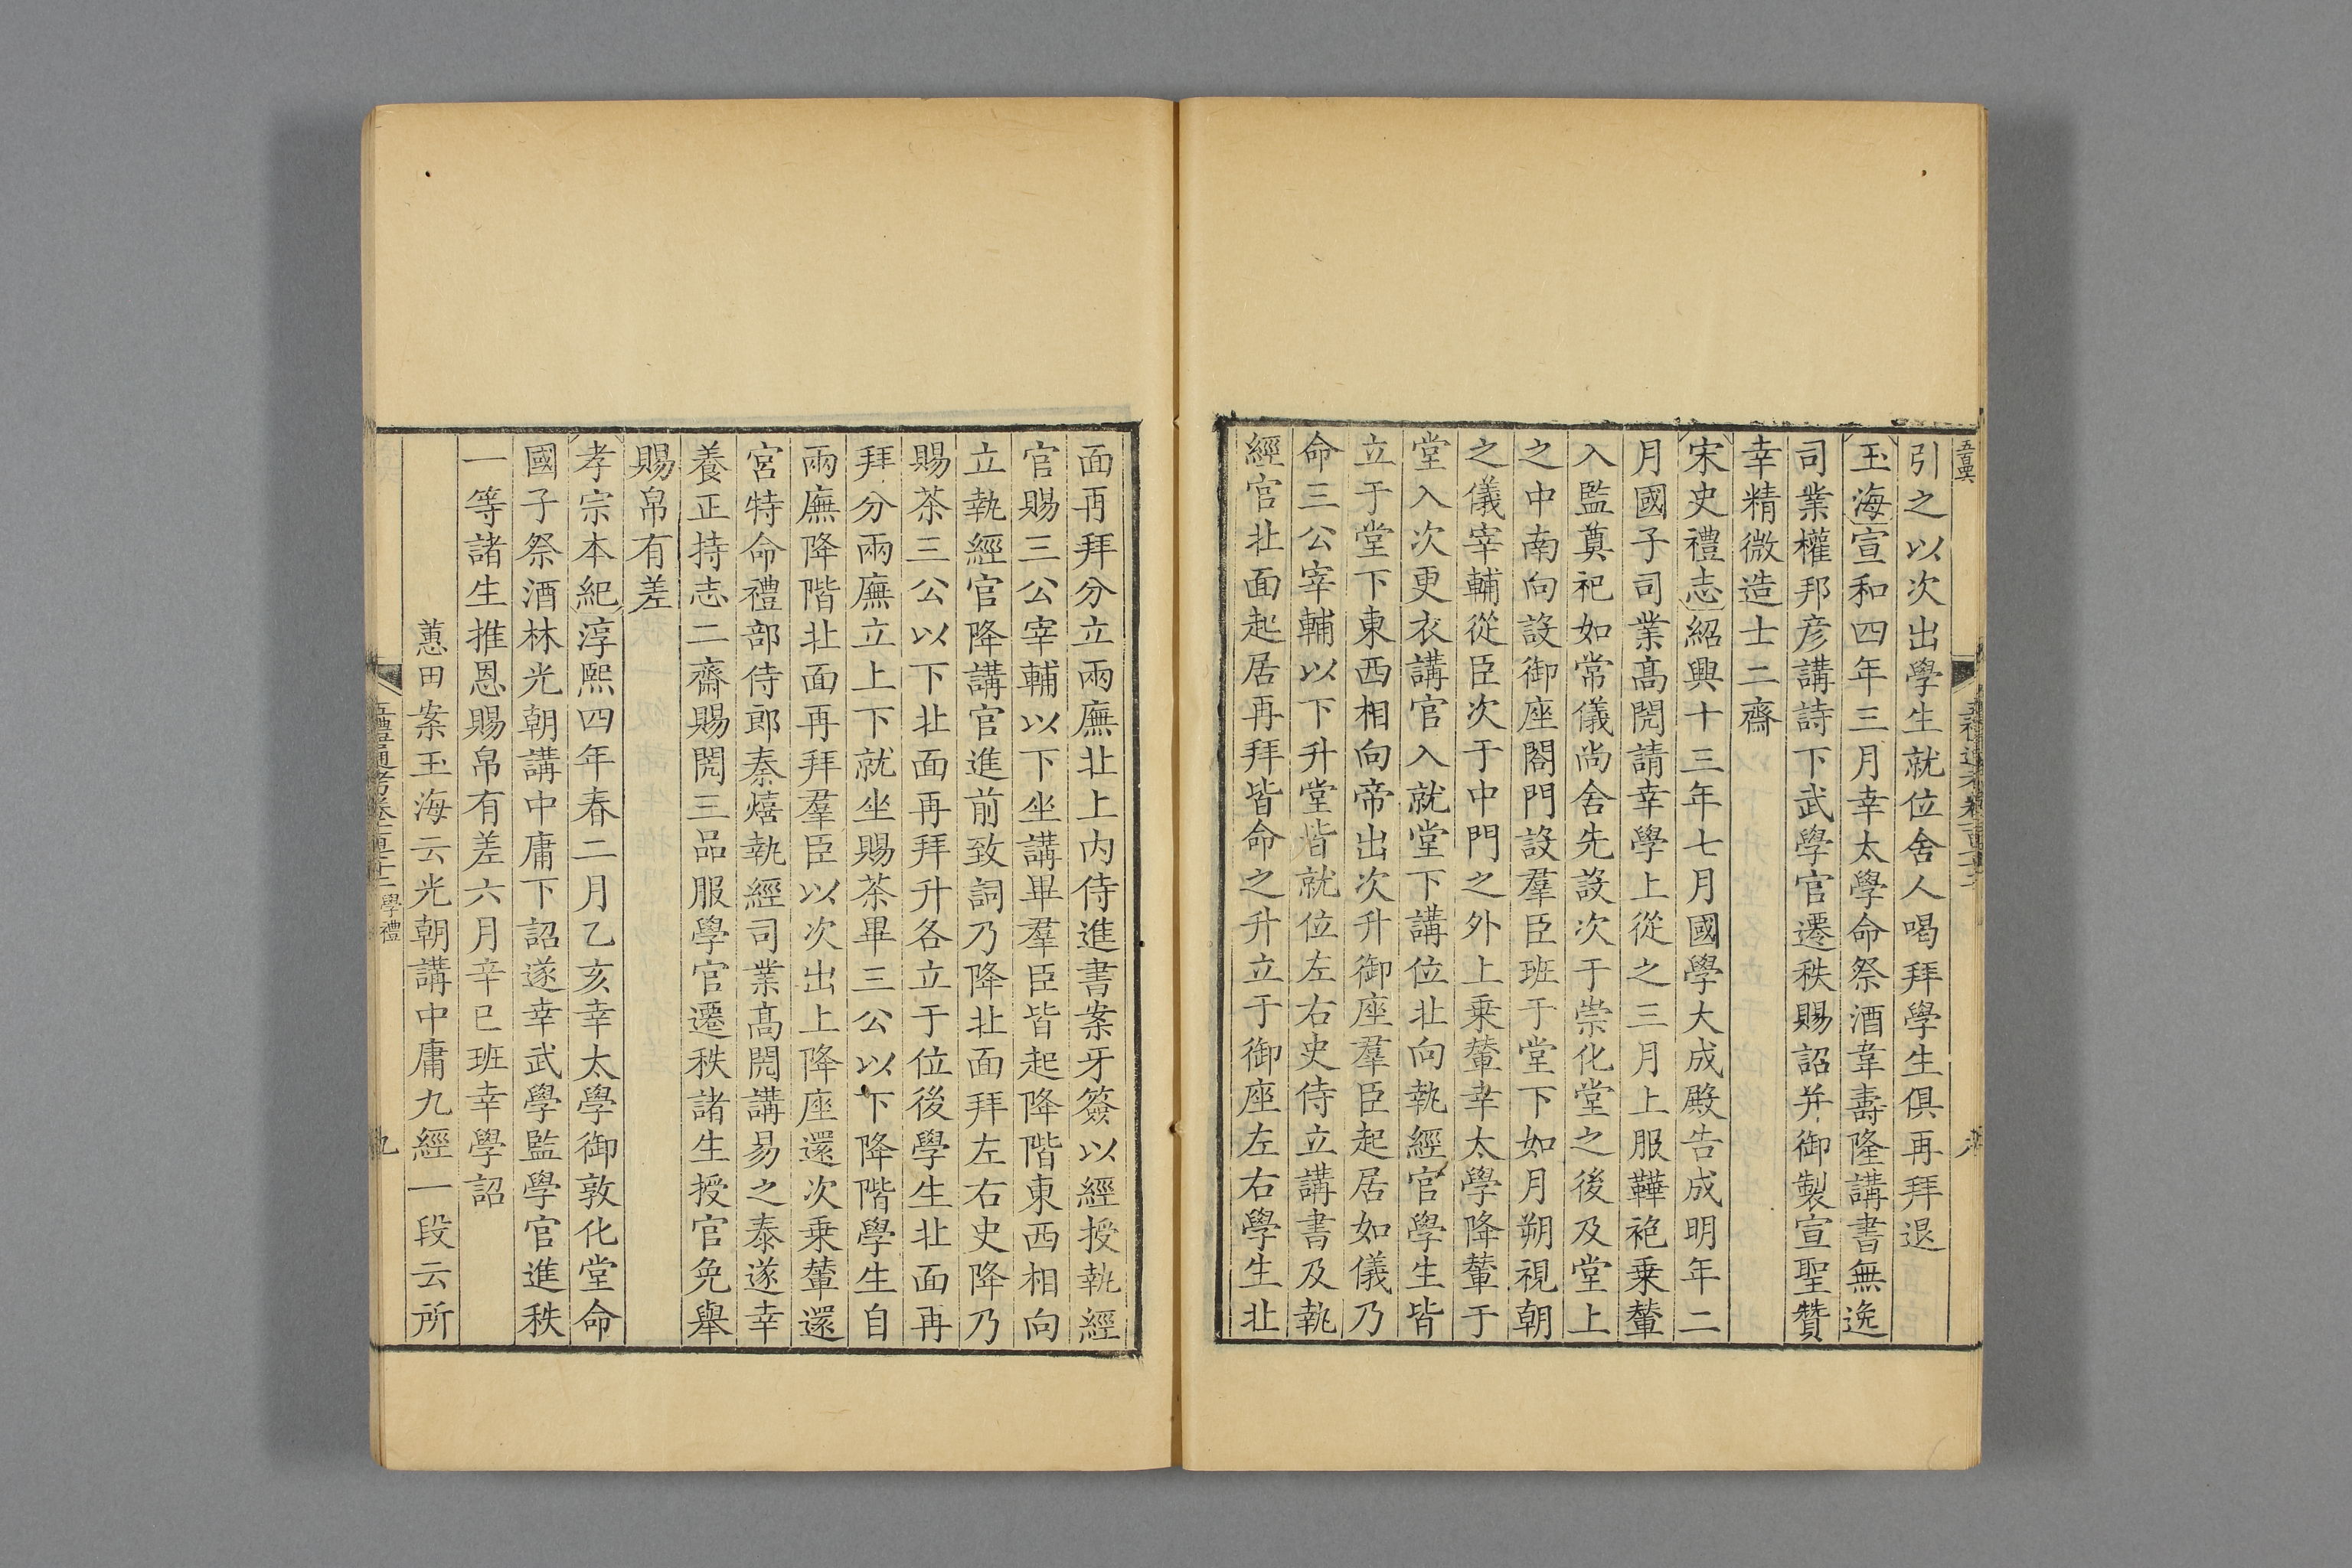 引之以次出學生就位舍人喝拜學生俱再拜退
玉海宣和四年三月幸太學命祭酒韋壽隆講書無逸
司業權邦彦講詩下武學官遷秩賜詔并御製宣聖贊
幸精微造士二齋
宋史禮志紹興十三年七月國學大成殿告成明年二
月國子司業髙閌請幸學上從之三月上服鞾袍乗輦
入監奠祀如常儀尚舍先設次于崇化堂之後及堂上
之中南向設御座閤門設羣臣班于堂下如月朔視朝
之儀宰輔從臣次于中門之外上乗輦幸太學降輦于
堂入次更衣講官入就堂下講位北向執經官學生皆
立于堂下東西相向帝出次升御座羣臣起居如儀乃
命三公宰輔以下升堂皆就位左右史侍立講書及執
經官北面起居再拜皆命之升立于御座左右學生北
面再拜分立兩廡北上内侍進書案牙籤以經授執經
官賜三公宰輔以下坐講畢羣臣皆起降階東西相向
立執經官降講官進前致詞乃降北面拜左右史降乃
賜茶三公以下北面再拜升各立于位後學生北面再
拜分兩廡立上下就坐賜茶畢三公以下降階學生自
兩廡降階北面再拜羣臣以次出上降座還次乗輦還
宮特命禮部侍郎秦熺執經司業髙閌講易之泰遂幸
養正持志二齋賜閌三品服學官遷秩諸生授官免舉
賜帛有差
孝宗本紀淳熙四年春二月乙亥幸太學御敦化堂命
國子祭酒林光朝講中庸下詔遂幸武學監學官進秩
一等諸生推恩賜帛有差六月辛巳班幸學詔
蕙田案玉海云光朝講中庸九經一段云所
五禮通考卷一百七十二 學禮
九